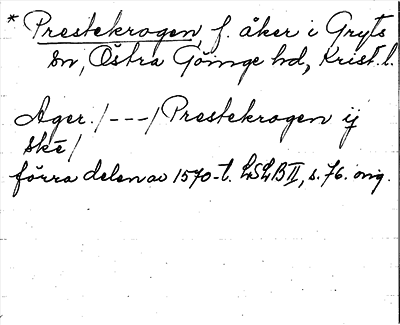 * Prestekrogen, f. åker i Gryts
sn, Östra Göinge hd, Krist. l.
Ager. / - - - / Prestekrogen ij
ske /
förra delen av 1570-t. LSLB II, s. 76. orig.